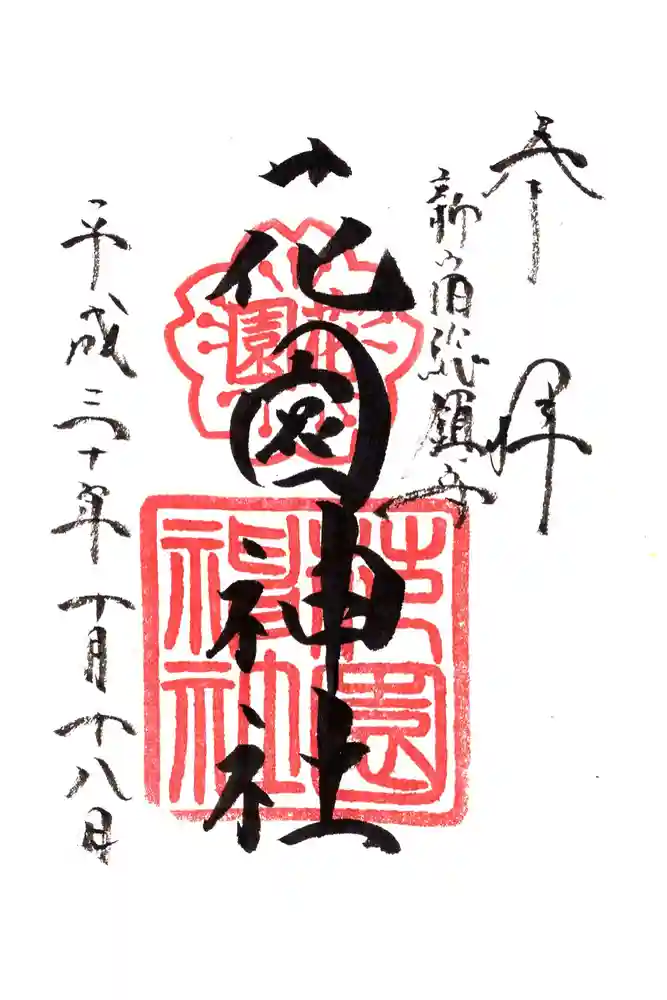 奉拝
新宿総鎮守
花園神社
花園
花園神社
平成三十年十月十八日